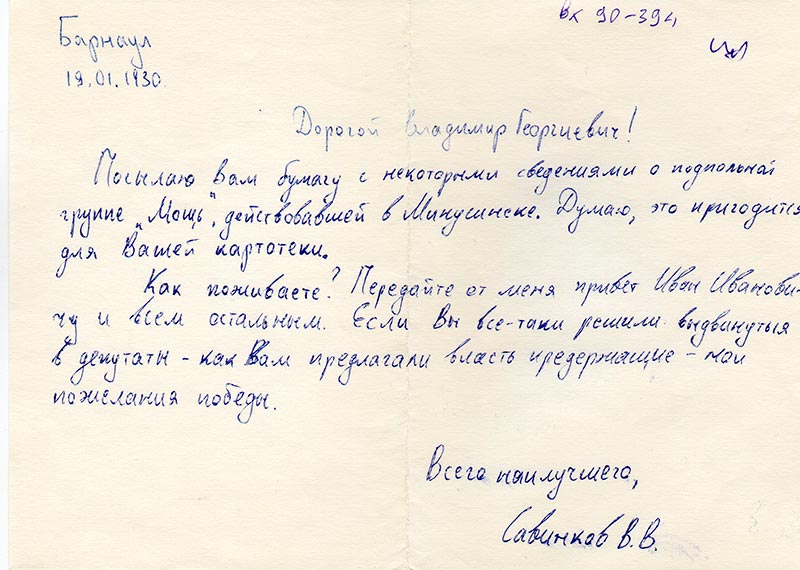 вх 90-394
Барнаул
19.01.1930.
Дорогой Владимир Георгиевич!
Посылаю Вам бумагу с некоторыми сведениями о подпольной
группе „Мощь", действовавшей в Минусинске. Думаю, это пригодится
для Вашей картотеки.
Как поживаете? Передайте от меня привет Иван Иванови-
чу и всем остальным. Если Вы все-таки решили выдвинуться
в депутаты - как Вам предлагали власть предержащие - мои
пожелания победы.
Всего наилучшего,
Савинков В.В.